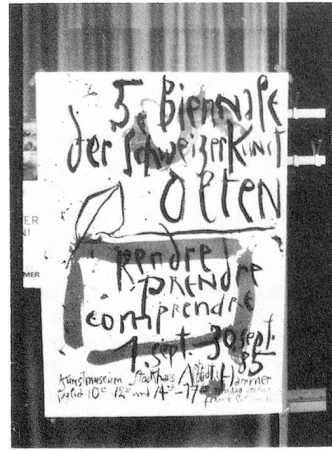 5. Biennale
der Schweizer Kunst
Olten
rendre
prendre
comprendre
1. sept. 30. sept.
85
Kunstmuseum Stadthaus Hammer
täglich 10 - 12 und 14 - 17
ER
NI
MER